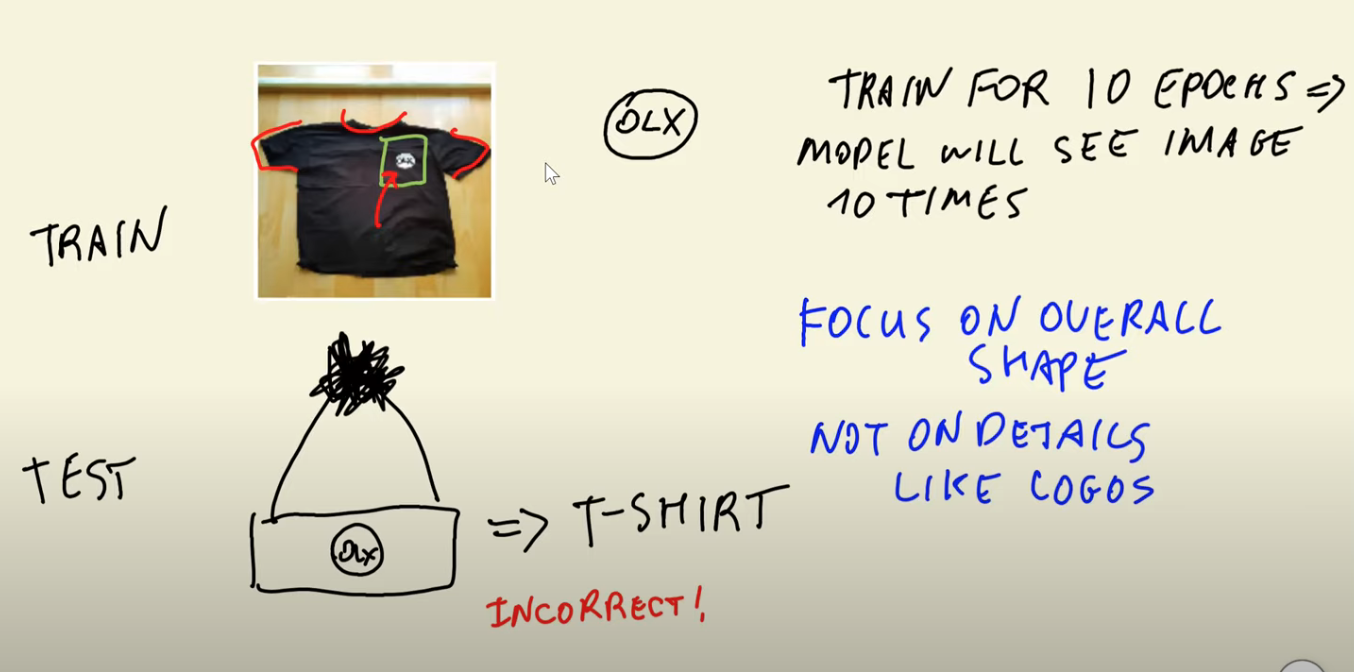 TRAIN
DLX
TRAIN FOR 10 EPOCHS =>
MODEL WILL SEE IMAGE
10 TIMES
FOCUS ON OVERALL
SHAPE
NOT ON DETAILS
LIKE LOGOS
TEST
DLX
=> T-SHIRT
INCORRECT!